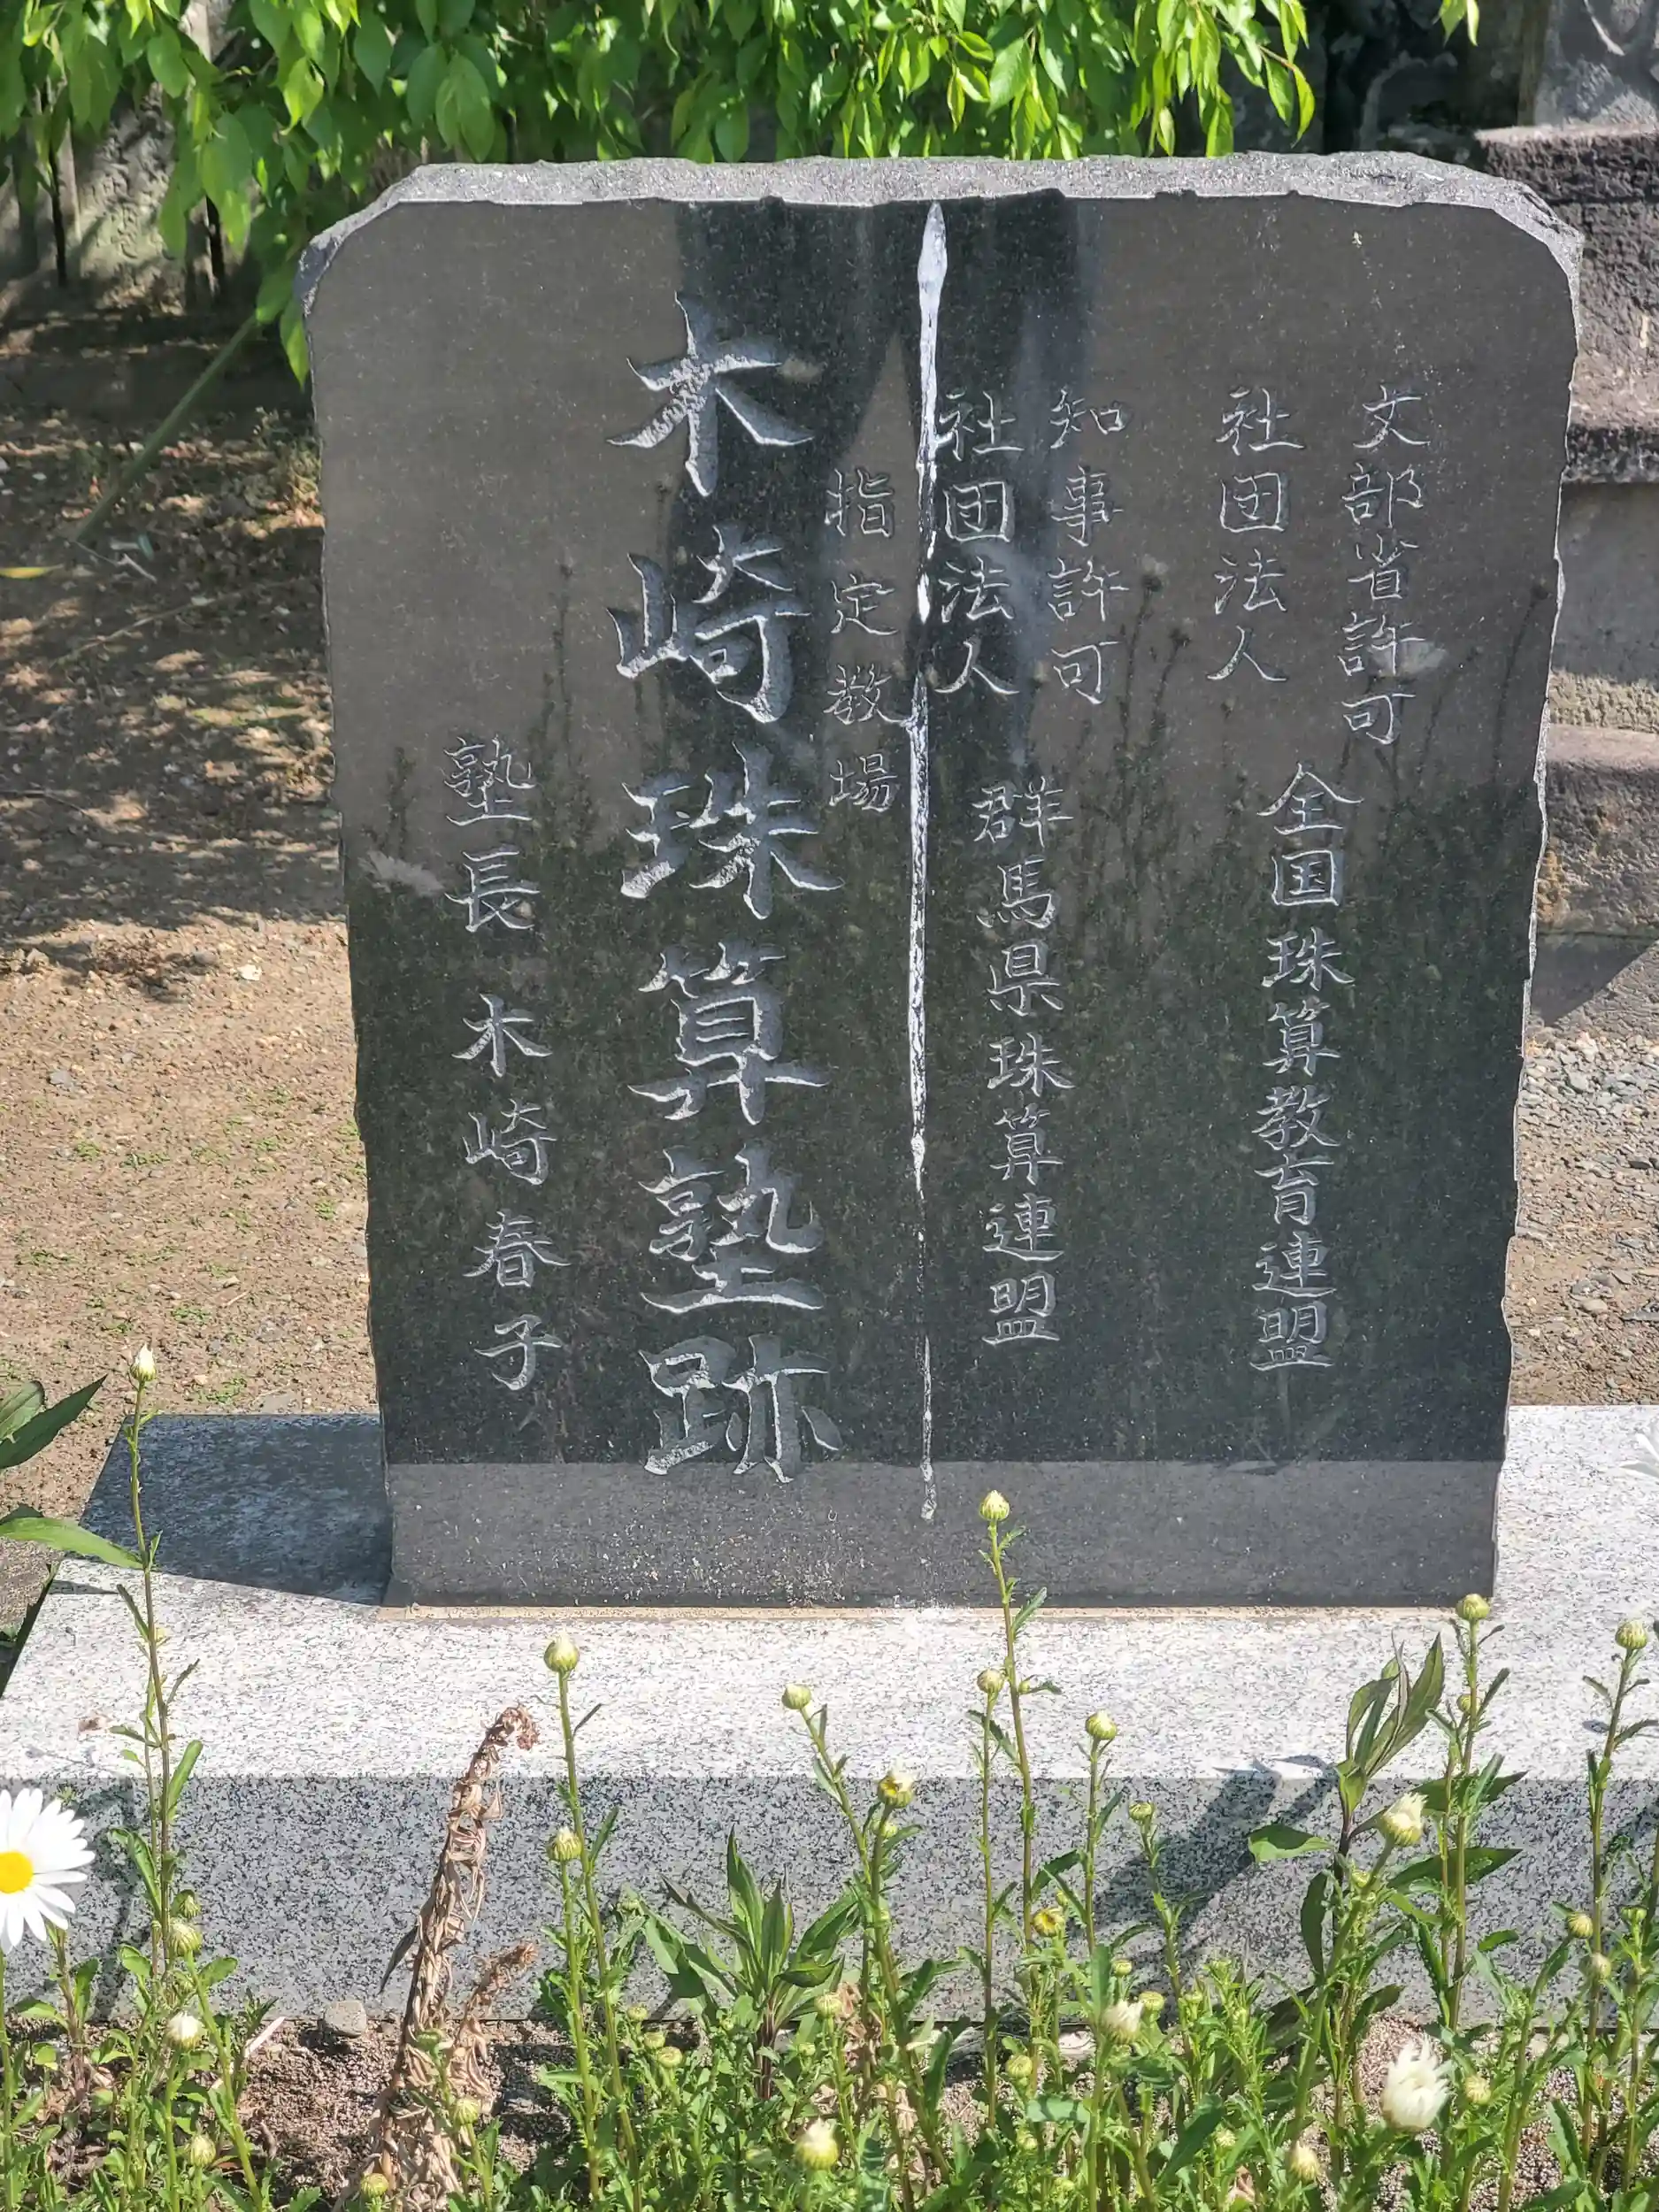 文部省許可
社団法人
全国珠算教育連盟
知事許可
社団法人
群馬県珠算連盟
指定教場
木崎珠算塾跡
塾長 木崎春子